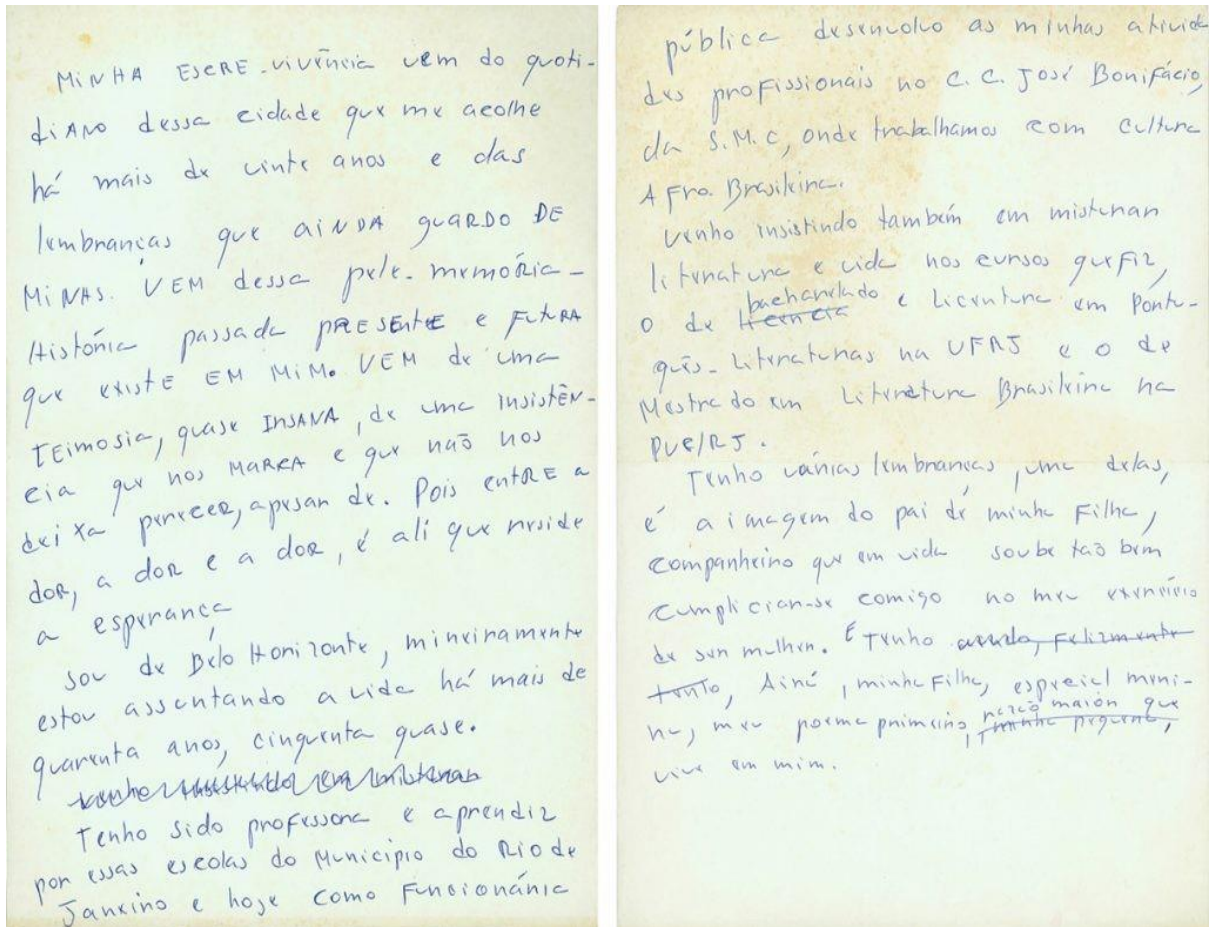 MINHA ESCRE-vivência vem do quoti-
diANO dessa cidade que me acolhe
há mais de vinte anos e das
lembranças que aiNDA guaRDO DE
MiNAS. VEM dessa pele-memória-
História passada pRESENTE e FutuRA
que existE EM MiM. VEM de uma
TEimosia, quase INSANA, de uma insistÊN-
cia que nos MARCA e que não nos
deixa perecer, apesar de. Pois entRE a
doR, a doR e a doR, é ali que reside
a esperança
sou de Belo Horizonte, mineiramente
estou assuntando a vida há mais de
quarenta anos, cinquenta quase.
venho insistindo em misturar
Tenho sido professora e aprendiz
por essas escolas do Município do Rio de
Janeiro e hoje como Funcionária
pública desenvolvo as minhas ativida
des profissionais no C. C. José Bonifácio,
da S.M.C, onde trabalhamos com cultura
AFro.Brasileira.
Venho insistindo também em misturar
literatura e vida nos cursos que fiz,
bacharelado
o de e Licentura em Portu-
guês-Literaturas na UFRJ e o de
Mestrado em Literatura Brasileira na
PUC/RJ.
Tenho várias lembranças, uma delas,
é a imagem do pai de minha Filha,
companheiro que em vida soube taõ bem
cumpliciar-se comigo no meu exercício
de ser mulher. E Tenho ainda, Felizmente
tento, Ainá, minha Filha, especial meni-
na, meu poema primeiro, maior que
minha pequena,
vive em mim.